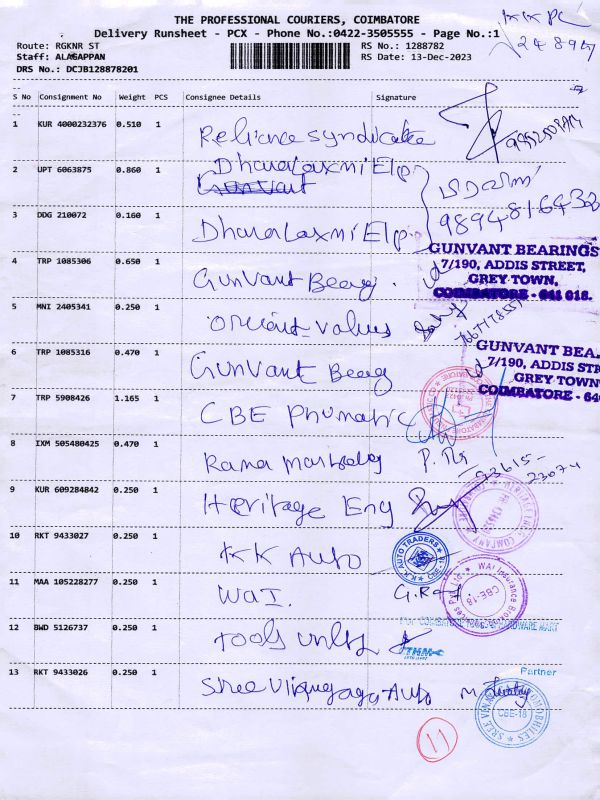 THE PROFESSIONAL COURIERS, COIMBATORE
Delivery Runsheet - PCX - Phone No.:0422-3505555 - Page No.:1
Route: RGKNR ST
RS No.: 1288782
Staff: ALAGAPPAN
RS Date: 13-Dec-2023
DRS No.: DCJB128878201
S No Consignment No Weight PCS Consignee Details Signature
1 KUR 4000232376 0.510 1 Reliance Syndicate
2 UPT 6063875 0.860 1 Dhanalaxmi Elp
Gunvant
9894816432
3 DDG 210072 0.160 1 Dhanalaxmi Elp.
GUNVANT BEARINGS
7/190, ADDIS STREET,
GREY TOWN,
COIMBATORE - 641 018.
4 TRP 1085306 0.650 1 Gunvant Bearg.
5 MNI 2405341 0.250 1 Orient Values
6 TRP 1085316 0.470 1 Gunvant Bearg
GUNVANT BEA
7/190, ADDIS STR
GREY TOWN
COIMBATORE - 64
7 TRP 5908426 1.165 1 CBE Phumatic
8 IXM 505480425 0.470 1 Rama
9 KUR 609284842 0.250 1 Heritage Eng
10 RKT 9433027 0.250 1 KK Auto
K.K. AUTO TRADERS CBE-18
11 MAA 105228277 0.250 1 WaI. G.Raj
WAI Insurance Brokers Pvt. Ltd. CBE-18
12 BWD 5126737 0.250 1 Tools Unltd
THM
13 RKT 9433026 0.250 1 Shree Vinayaga Auto
Partner
CBE-18
11